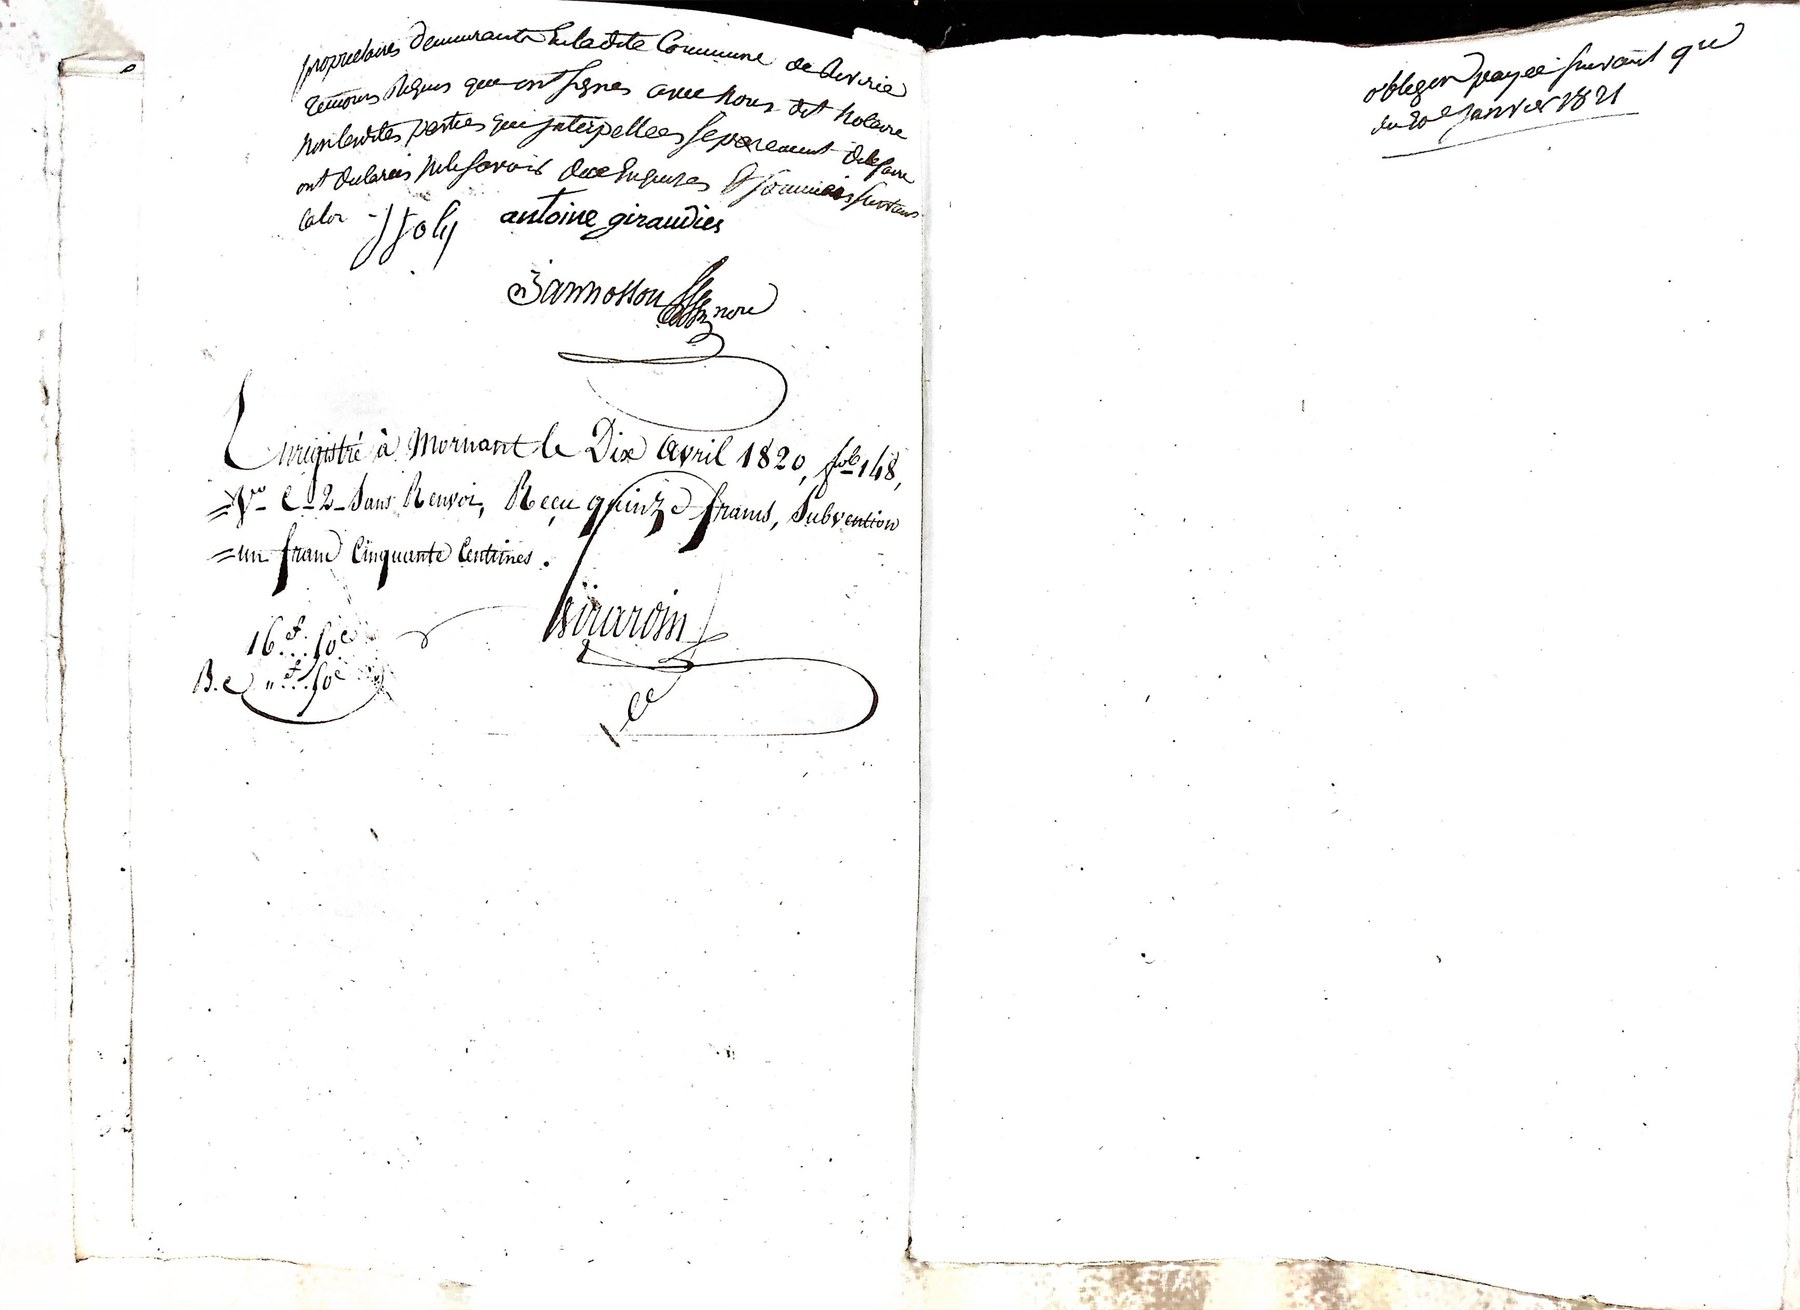 proprietaires demeurants En ladite Commune de Riverie
temoins Requis qui ont signes avec Nous dit Notaire
non lesdites parties qui Interpellees Separement de le faire
ont declarés ne le Savoir de ce Enquises Et Sommées suivant
la loi - J Joly antoine giraudier
nore
Enregistré à Mornant le Dix avril 1820, fol. 148,
Vo. C. 2 Sans Renvoi, Reçu quinze francs, Subvention
un franc Cinquante Centimes.
girardin
16f... 50c
"f... 50c
obligon payée suivant que
du 20e Janvier 1821